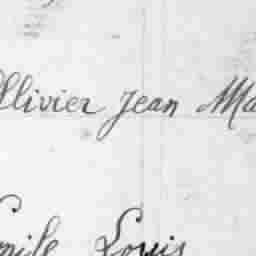 Ollivier Jean Ma
Emile Louis